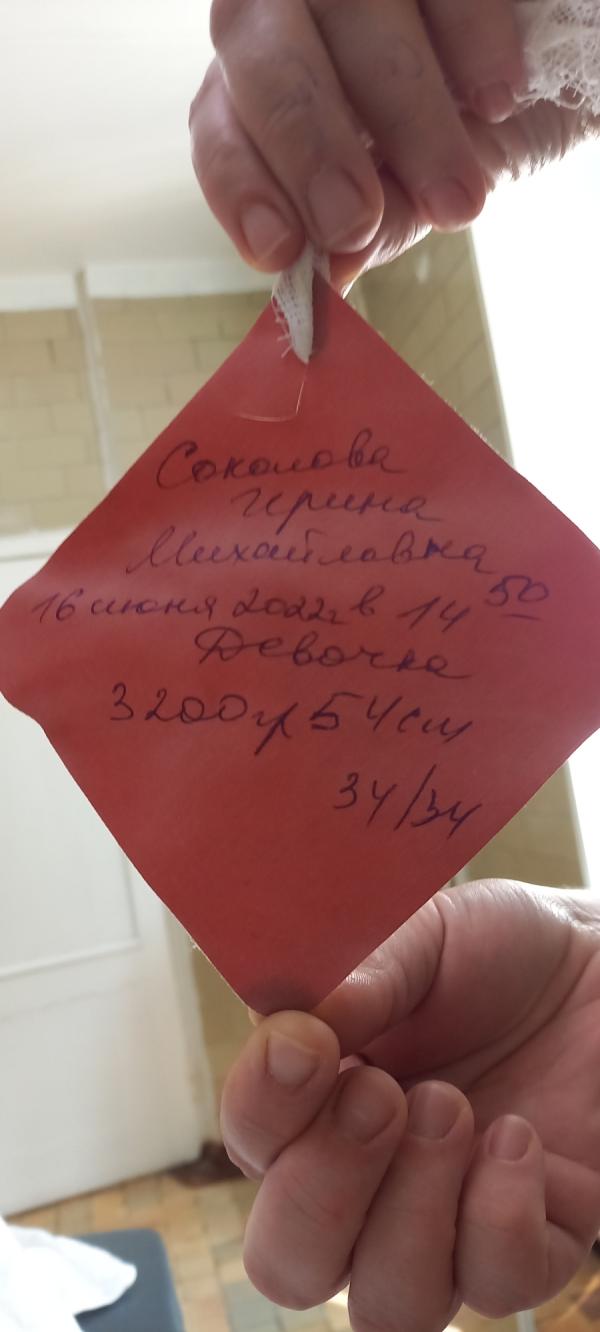 Соколова
Ирина
Михайловна
16 июня 2022г в 14 50
Девочка
3200гр 54см
34/34